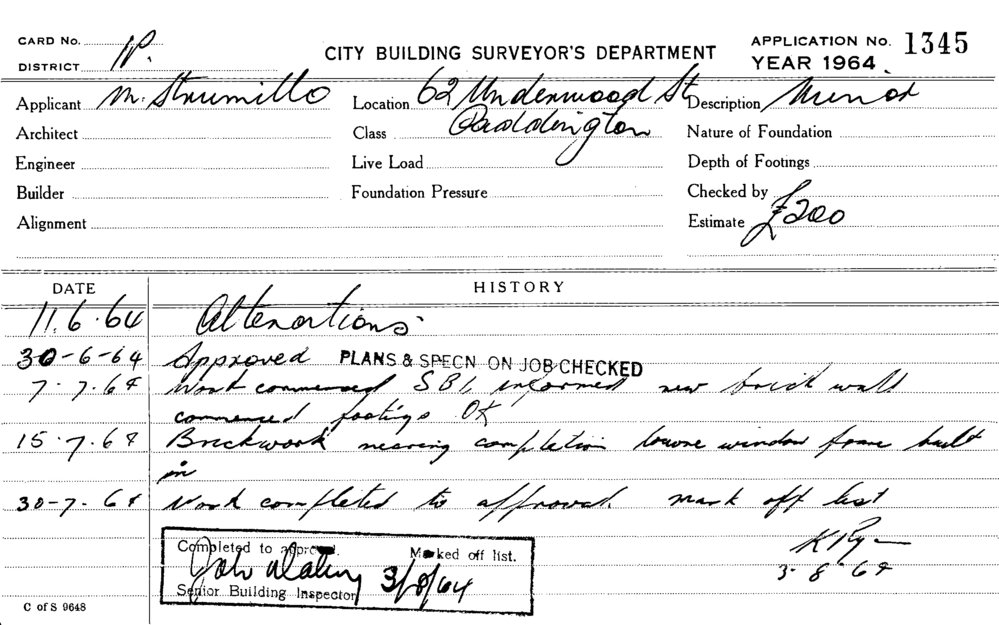 CARD No.
DISTRICT P.
CITY BUILDING SURVEYOR'S DEPARTMENT
APPLICATION No. 1345
YEAR 1964
Applicant M. Strumillo
Location 62 Underwood St
Description Minor
Architect
Class Paddington
Nature of Foundation
Engineer
Live Load
Depth of Footings
Builder
Foundation Pressure
Checked by
Alignment
Estimate £200
DATE HISTORY
11.6.64 Alterations
30-6-64 Approved PLANS & SPECN ON JOB CHECKED
7.7.64 Work commenced SBI, informed new brick wall
commenced footings OK
15.7.64 Brickwork nearing completion window frame built
in
30-7-64 Work completed to approval mark off list
K Ryan
3-8-64
Completed to approval. Marked off list.
3/8/64
Senior Building Inspector
C of S 9648